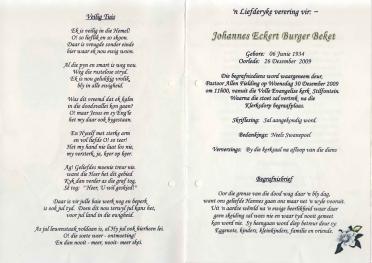 Veilig Tuis
Ek is veilig in die Hemel!
O! so lieflik en so skoon.
Daar is vreugde sonder einde
hier waar ek nou ewig woon.
Al die pyn en smart is weg nou.
Weg die rustelose stryd.
Ek is nou gelukkig vrolik,
bly in alle ewigheid.
Was dit vreemd dat ek kalm
in die doodsvallei kon gaan?
O! maar Jesus en sy Eng'le
het my daar ook bygestaan.
En Hyself met sterke arm
en vol liefde O! so teer!
Het my hand nie laat los nie,
my versterk, ja, keer op keer.
Ag! Geliefdes moenie treur nie
want die Heer het dit gebied
Kyk dan verder as die graf tog,
Sê tog: "Heer, U wil geskied!"
Daar is vir julle baie werk nog en beperk
is ook jul tyd. Doen dit nou terwyl jul kans het,
voor jul land in die ewigheid.
As jul lewenstaak voldaan is, sl Hy jul ook hierheen lei.
O! die soete weer - ontmoeting!
En dan nooit - meer, nooit- meer skei.
'n Liefderyke verering vir: ~
Johannes Eckert Burger Beket
Gebore: 06 Junie 1934
Oorlede: 26 Desember 2009
Die begrafnisdiens word waargeneem deur,
Pastoor Allen Fielding op Woensdag 30 Desember 2009
om 11h00, vanuit die Volle Evangelise kerk, Stilfontein.
Waarna die stoet sal vertrek na die
Klerksdorp begraafplaas.
Skriflesing: Sal aangekondig word.
Bedankings: Neels Swanepoel
Verversings: By die kerksaal na afloop van die diens
Begrafnisbrief
Oor die grense van die dood weg daar 'n bly dag,
want ons geliefde Hennes gaan ons maar net 'n wyle vooruit.
Uit 'n aardse wêreld na 'n ewige heerlikheid waar daar
geen skeiding sal wees nie en waar tyd nooit gemeet
kan word nie. Sy heengaan word diep betreur deur sy
Eggenote, kinders, kleinkinders, familie en vriende.